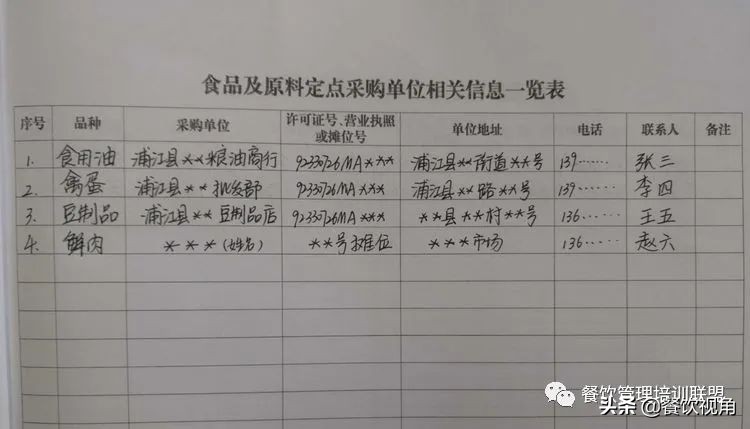 食品及原料定点采购单位相关信息一览表
序号 品种 采购单位 许可证号、营业执照或摊位号 单位地址 电话 联系人 备注
1. 食用油 浦江县**粮油商行 92330726MA*** 浦江县**街道**号 139…… 张三
2. 禽蛋 浦江县**批发部 92330726MA*** 浦江县**路**号 139…… 李四
3. 豆制品 浦江县**豆制品店 92330726MA*** **县**村**号 136…… 王五
4. 鲜肉 ***(姓名) **号摊位 ***市场 136…… 赵六
餐饮管理培训联盟
头条@餐饮视角